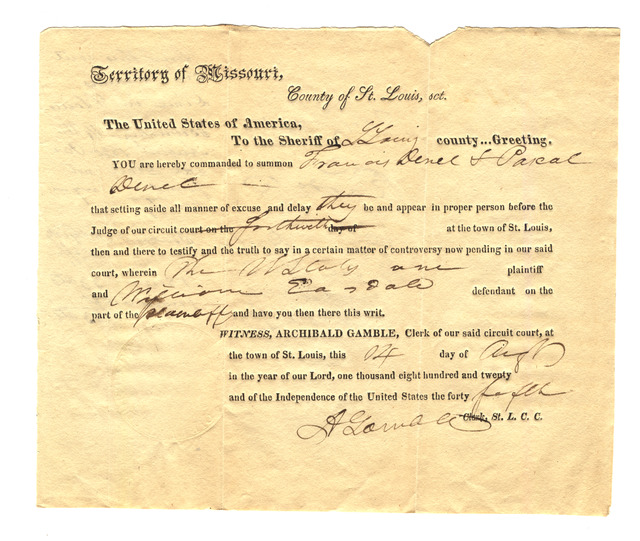 Territory of Missouri,
County of St. Louis, sct.
The United States of America,
To the Sheriff of St Louis county...Greeting.
YOU are hereby commanded to summon Francis Denel & Pascal
Denel
that setting aside all manner of excuse and delay they be and appear in proper person before the
Judge of our circuit court on the forthwith day of at the town of St. Louis,
then and there to testify and the truth to say in a certain matter of controversy now pending in our said
court, wherein The U States are plaintiff
and William Easdale defendant on the
part of the plaintiff and have you then there this writ.
WITNESS, ARCHIBALD GAMBLE, Clerk of our said circuit court, at
the town of St. Louis, this 14 day of Augt
in the year of our Lord, one thousand eight hundred and twenty
and of the Independence of the United States the forty fifth
A Gamble Clerk, St. L. C. C.